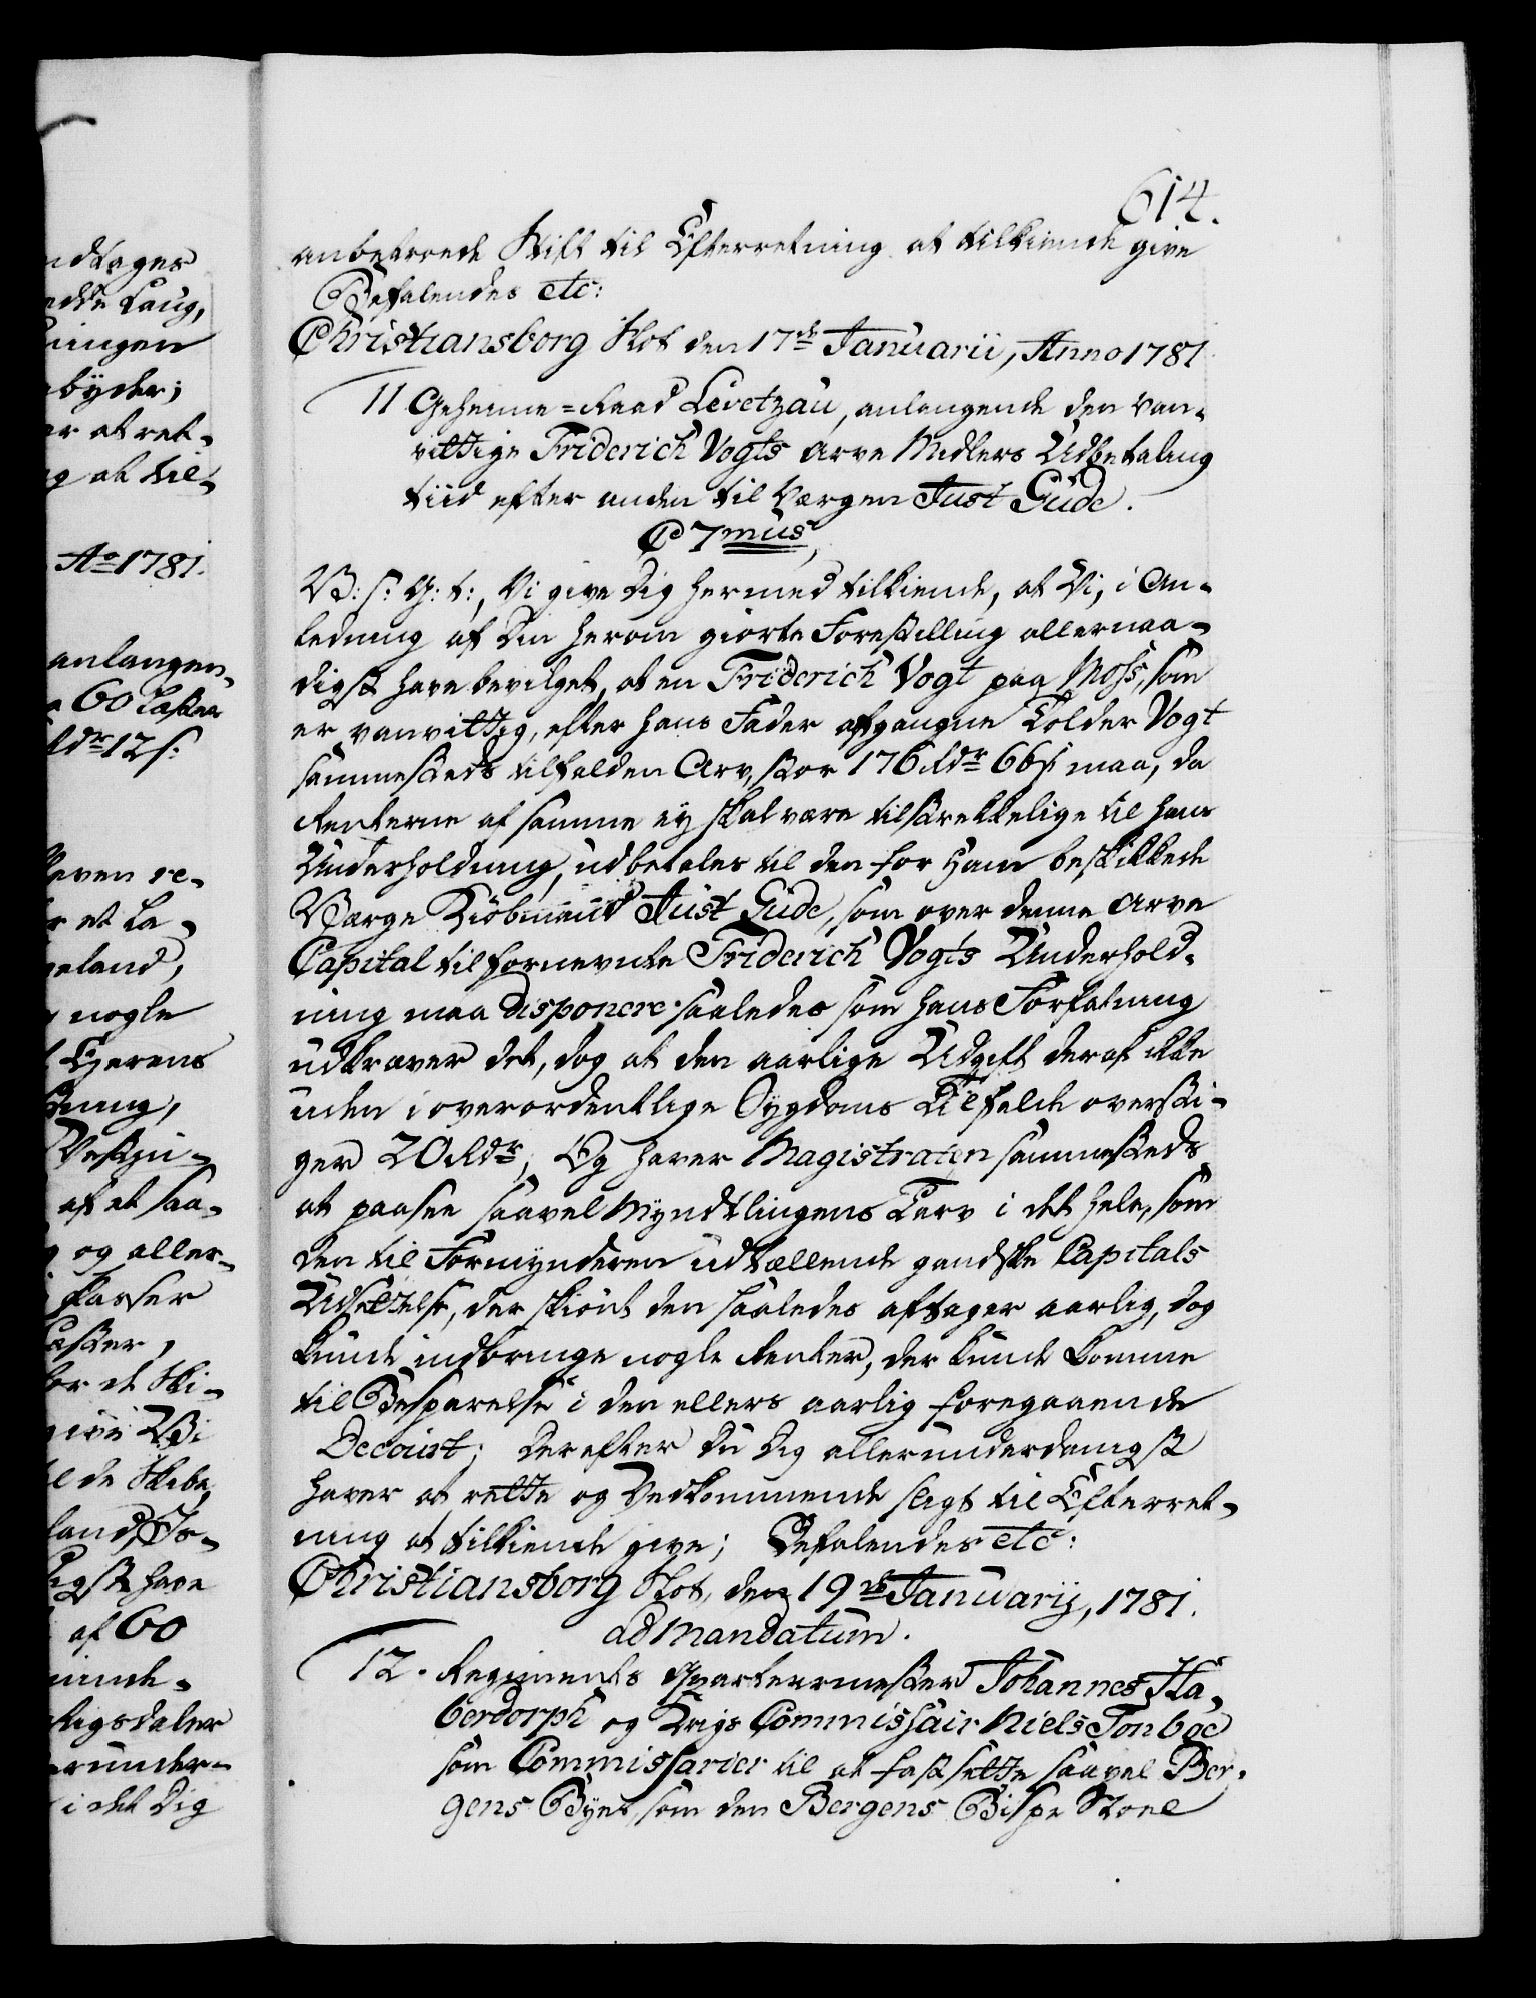 614.
anbetroede Stift til Efterretning at tilkiende give
Befalendes etc:
Christiansborg Slot den 17de Januarii, Anno 1781
11 Geheime=Raad Levetzau, anlangende den van-
vittige Friderich Vogts Arve Midlers Udbetaling
tiid efter anden til Værgen Just Gude.
C 7mus,
V: S: G: t:, Vi give Dig hermed tilkiende, at Vi, i An-
ledning af Din herom giorte Forestilling allernaa-
digst have bevilget, at en Friderich Vogt paa Moss, som
er vanvittig, efter hans Fader afgangne Tolder Vogt
sammesteds tilfalden Arv, stor 176 Rdr 66 s: maa, da
Renterne af samme ey skal være tilstrekkelige til hans
Underholdning, udbetales til den for Ham beskikkede
Værge Kiöbmand Just Gude, som over denne Arve
Capital til fornevnte Friderich Vogts Underhold-
ning maa disponere saaledes som hans Forfatning
udkræver det, dog at den aarlige Udgift deraf ikke
uden i overordentlige Sygdoms Tilfælde oversti-
ger 20 Rdr; Og haver Magistraten sammesteds
at paasee saavel Myndtlingens Tarv i det hele, som
den til Formynderen udtællende gandske Capitals
Udsættelse, der skiönt den saaledes aftager aarlig, dog
kunde indbringe nogle Renter, der kunde komme
til Besparelse i den ellers aarlig foregaaende
Decourt; Derefter Du Dig allerunderdanigst
haver at rette og Vedkommende sligt til Efterret-
ning at tilkiende give; Befalendes etc:
Christiansborg Slot, den 19de Januarij, 1781.
ad Mandatum.
12. Regiments Qvarteermester Johannes Ha-
berdorph og Krigs Commissair Niels Tonboe
som Commissarier til at fastsette saavel Ber-
gens Byes, som den Bergens Bispe Stoel
ndtages
edde Laug,
ningen
byder;
er at ret-
g at til-
Ao 1781.
anlangen-
60 Læster
Rdr 12 s:
aven re-
et La-
eland,
nogle
Eyerens
ning,
af et saa-
og aller-
Kasser
æster,
for et Ski-
give Vi
de Skibe,
land, Is-
digst have
af 60
Rigsdaler
erunder-
i det Dig